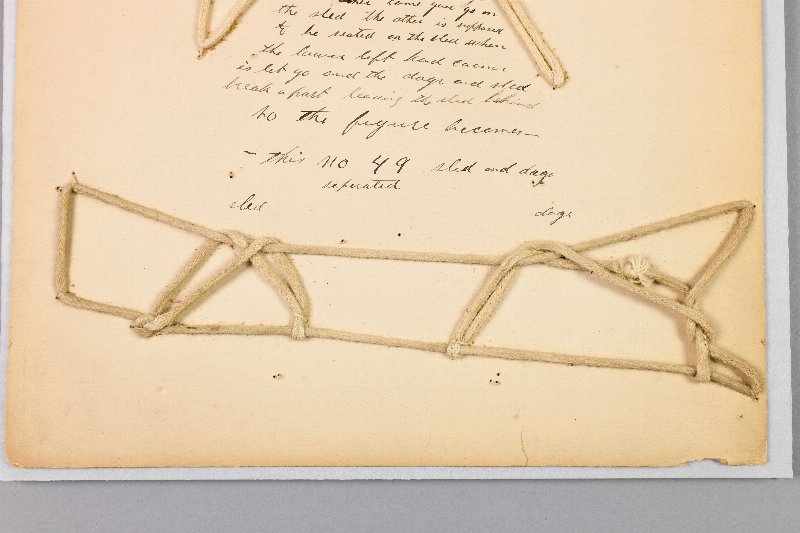 come you go on
the sled the other is supposed
to be seated on the sled when
the lower left hand corner
is let go and the dogs and sled
break apart leaving the sled behind
so the figure becomes—
– this no 49 sled and dogs
seperated
sled
dogs